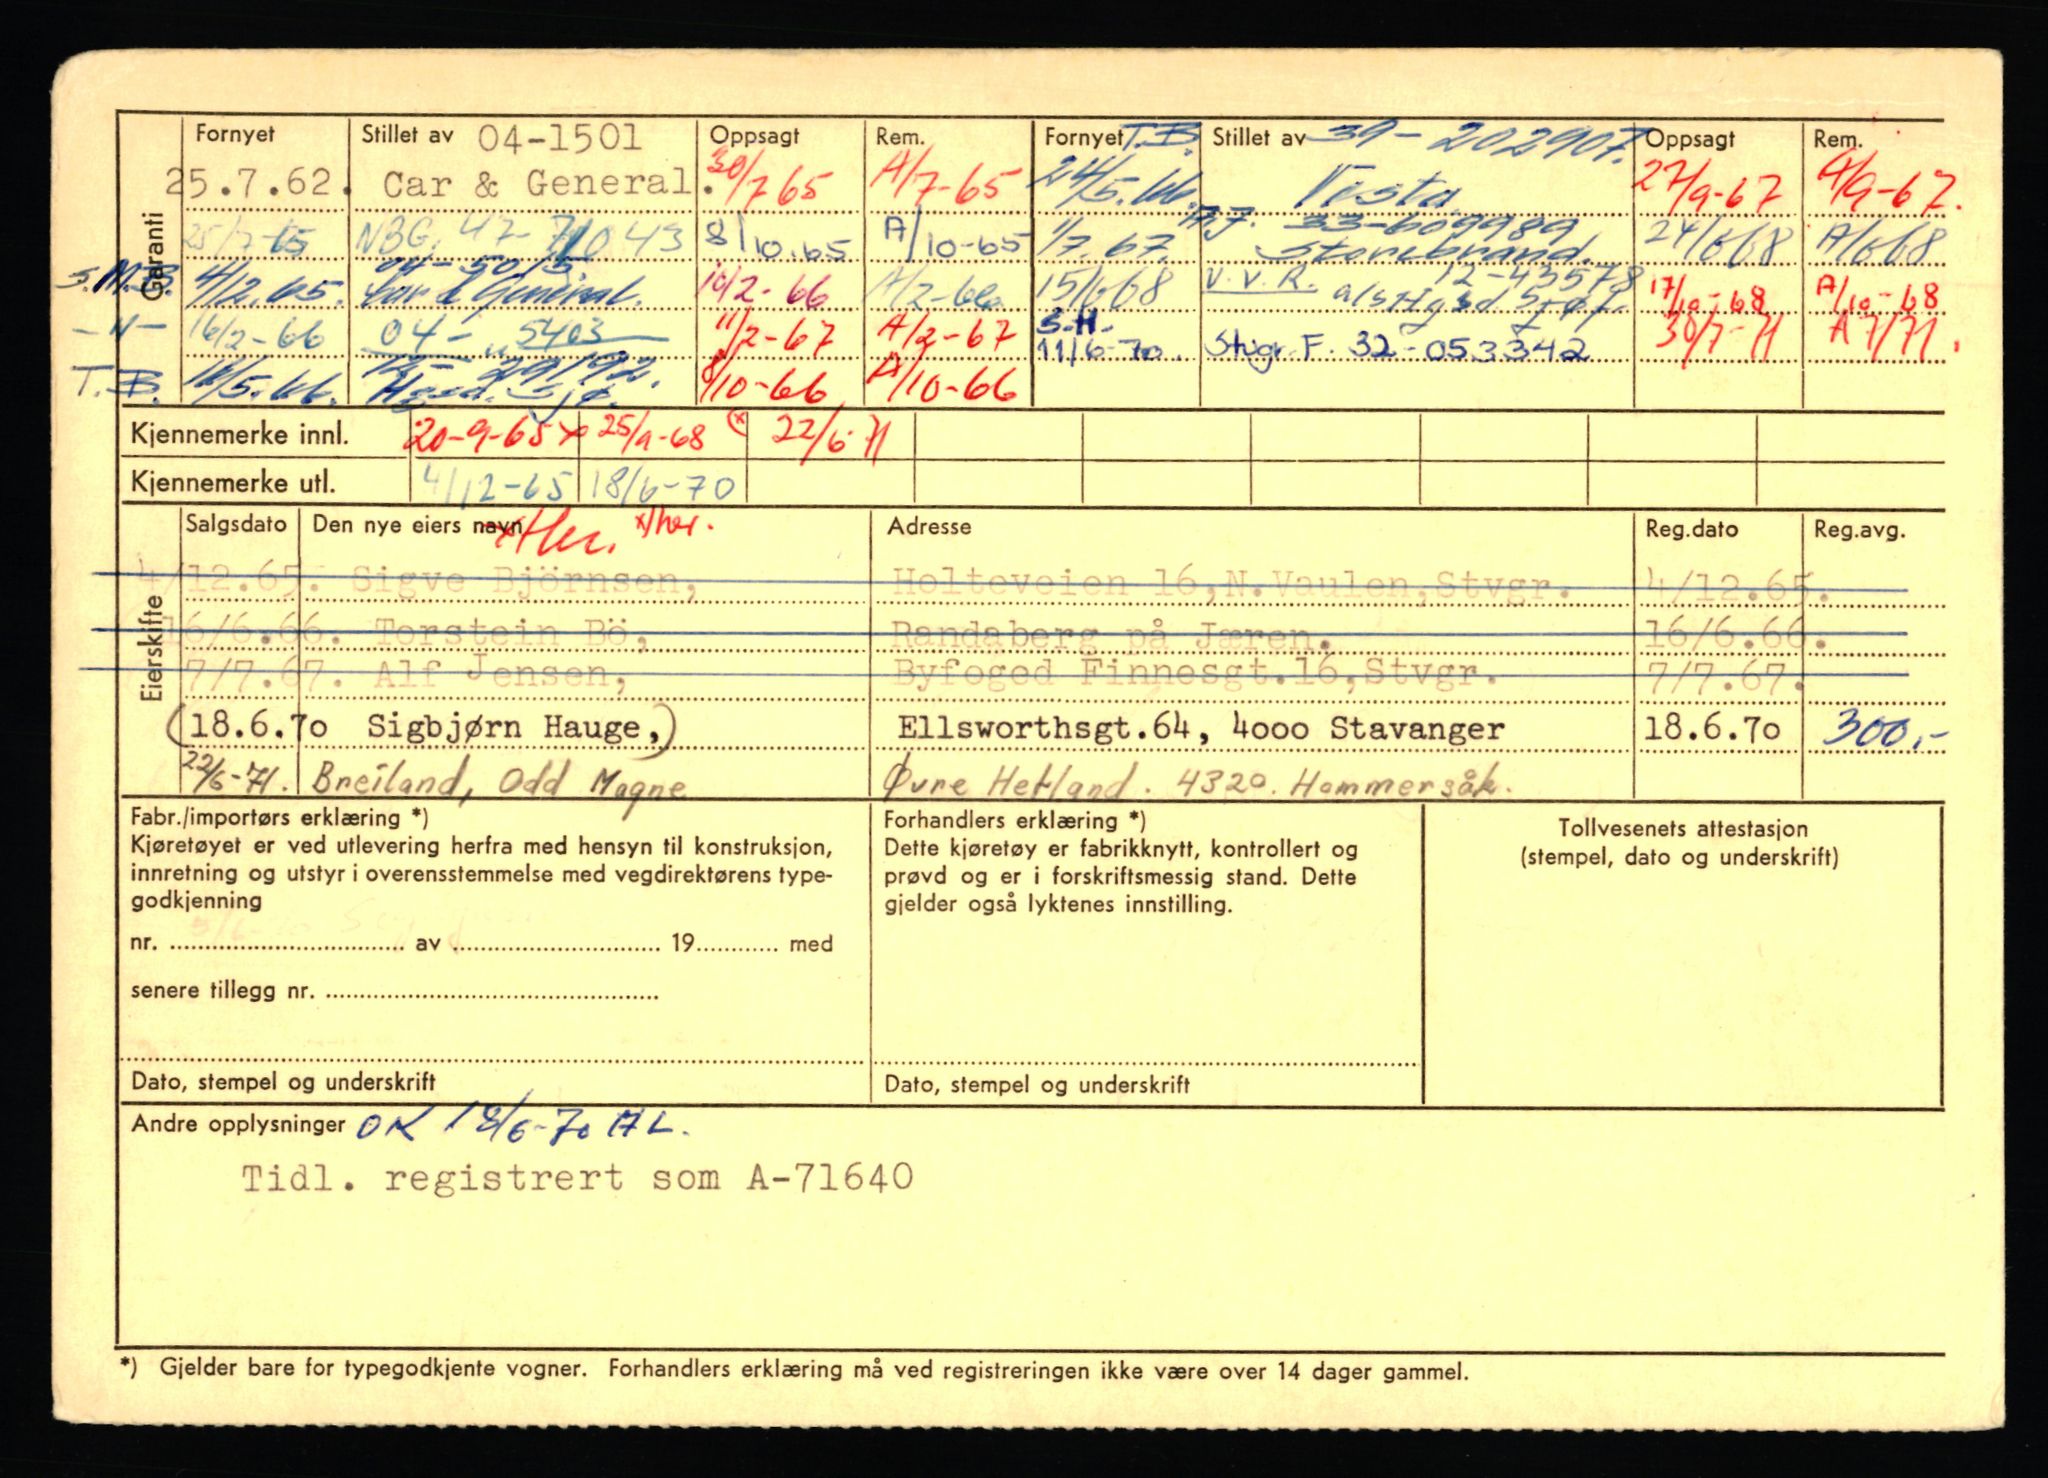 Garanti
Fornyet Stillet av 04-1501 Oppsagt Rem. Fornyet T.B. Stillet av 39-202907. Oppsagt Rem.
25.7.62. Car & General. 30/7 65 A/7-65 24/5.66. Vesta 27/9-67 A/9-67.
25/7-65 NBG. 47- 8/10.65 A/10-65 1/7.67. A.J. 33-609989 Storebrand. 24/6 68 A/6 68
S.M.B. 4/12.65. 04-5015. Car & General. 16/2-66 A/2-66 15/6 68 V.V.R. 12-43578 17/10-68 A/10-68
-N- 16/2-66 04- 5403 11/2-67 A/2-67 S.H. 11/6-70. Stvgr. F. 32-053342 30/7-71 A 7/71.
T.B. 16/5.66. 12-29192. 8/10-66 A/10-66
Kjennemerke innl. 20-9-65 x 25/9-68 (x 22/6-71
Kjennemerke utl. 4/12-65 18/6-70
Eierskifte
Salgsdato Den nye eiers navn Adresse Reg.dato Reg.avg.
x Her. x) her.
4/12.65. Sigve Björnsen, Holteveien 16,N.Vaulen,Stvgr. 4/12.65.
16/6.66. Torstein Bö, Randaberg på Jæren. 16/6.66.
7/7.67. Alf Jensen, Byfoged Finnesgt.16,Stvgr. 7/7.67.
(18.6.70 Sigbjørn Hauge,) Ellsworthsgt.64, 4000 Stavanger 18.6.70 300.-
22/6-71. Breiland, Odd Magne Øvre Hetland. 4320. Hommersåk.
Fabr./importørs erklæring *)
Kjøretøyet er ved utlevering herfra med hensyn til konstruksjon,
innretning og utstyr i overensstemmelse med vegdirektørens type-
godkjenning
nr. .................... av .................... 19............ med
senere tillegg nr. ....................
Dato, stempel og underskrift
Forhandlers erklæring *)
Dette kjøretøy er fabrikknytt, kontrollert og
prøvd og er i forskriftsmessig stand. Dette
gjelder også lyktenes innstilling.
Dato, stempel og underskrift
Tollvesenets attestasjon
(stempel, dato og underskrift)
Andre opplysninger OK 18/6-70 AL.
Tidl. registrert som A-71640
*) Gjelder bare for typegodkjente vogner. Forhandlers erklæring må ved registreringen ikke være over 14 dager gammel.